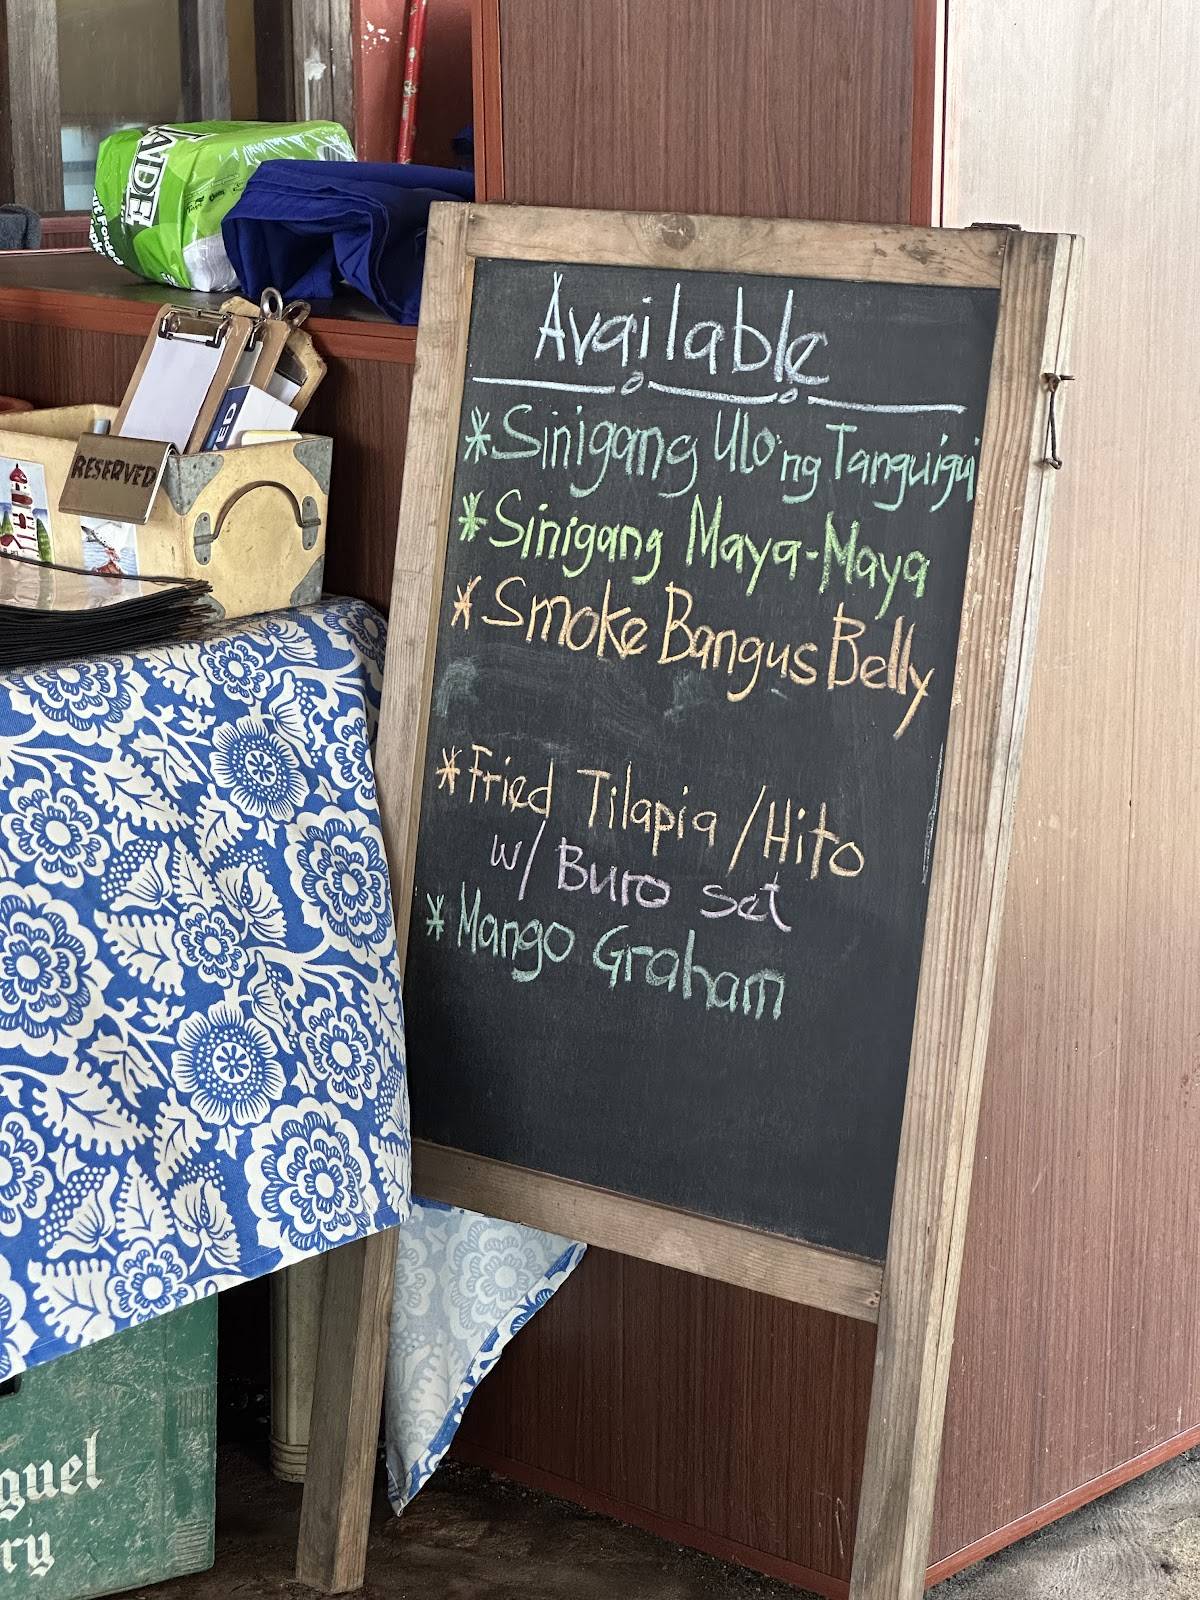 Available
*Sinigang Ulo ng Tanguigui
*Sinigang Maya-Maya
*Smoke Bangus Belly
*Fried Tilapia/Hito
w/ Buro set
*Mango Graham
RESERVED